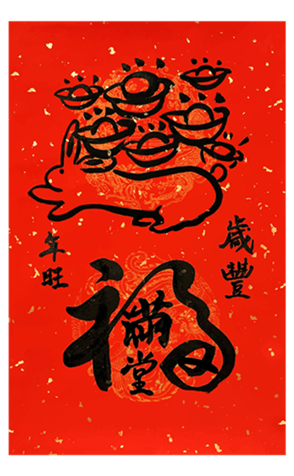 歲豐
年旺
福
滿堂